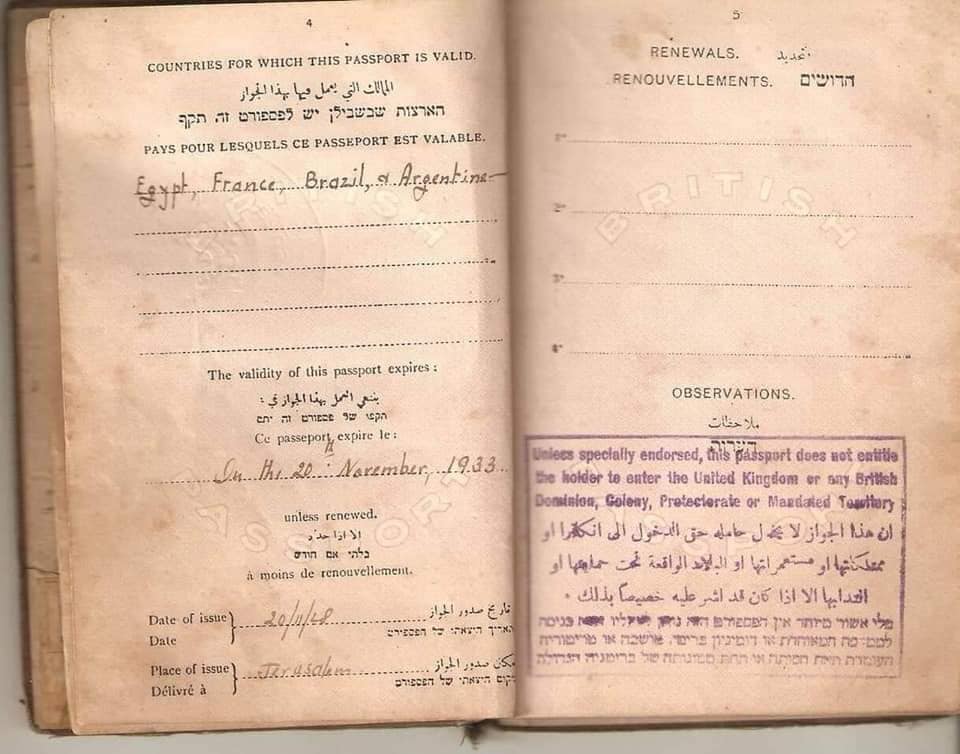 4
COUNTRIES FOR WHICH THIS PASSPORT IS VALID.
الممالك التي يعمل فيها بهذا الجواز
הארצות שבשבילן יש לפספורט זה תקף
PAYS POUR LESQUELS CE PASSEPORT EST VALABLE.
Egypt, France, Brazil, & Argentine
BRITISH
PASSPORT
The validity of this passport expires :
ينتهي العمل بهذا الجواز في :
תקפו של פספורט זה יתם
Ce passeport expire le :
On the 20th November, 1933
unless renewed.
الا اذا جدد
בלתי אם חודש
à moins de renouvellement.
Date of issue } 20/11/28 تاريخ صدور الجواز
Date תאריך הוצאתו של הפספורט
Place of issue } Jerusalem مكان صدور الجواز
Délivré à מקום הוצאתו של הפספורט
5
RENEWALS. تجديد
RENOUVELLEMENTS. חדושים
1°
2°
BRITISH
3°
4°
OBSERVATIONS.
ملاحظات
הערות
Unless specially endorsed, this passport does not entitle
the holder to enter the United Kingdom or any British
Dominion, Colony, Protectorate or Mandated Territory
ان هذا الجواز لا يخول حامله حق الدخول الى انكلترا او
ممتلكاتها او مستعمراتها او البلاد الواقعة تحت حمايتها او
انتدابها الا اذا كان قد اشر عليه خصيصاً بذلك .
בלי אשור מיוחד אין הפספורט הזה נותן לבעליו כניסה
לממלכה המאוחדת או דומיניון בריטי, מושבה או טריטוריה
העומדת תחת חסותה או תחת ממונותה של בריטניה הגדולה